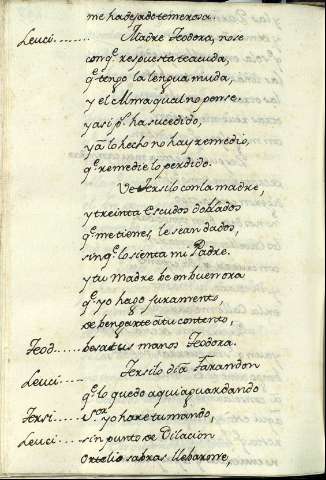 me ha dejado temerosa.
Leuci........ Madre Teodora, no se
con q.e respuesta te acuda,
q.e tengo la lengua muda,
y el Alma qual no pense
y asi p.r ha sucedido,
y à lo hecho no hay remedio,
q.e remedie lo perdido.
Ve Tersilo con la madre,
y treinta Escudos doblados
q.e me tienes, le sean dados,
sin q.e lo sienta mi Padre.
y tu Madre be en buen ora
q.e yo hago juramento,
de bengarte à tu contento,
Teod...... besa tus manos Teodora.
Leuci..... Tersilo di à Farandon
q.e lo quedo aqui aguardando
Tersi..... S.or yo hare tu mando,
Leuci..... sin punto de Dilacion
Ortelio sabras llebarme,